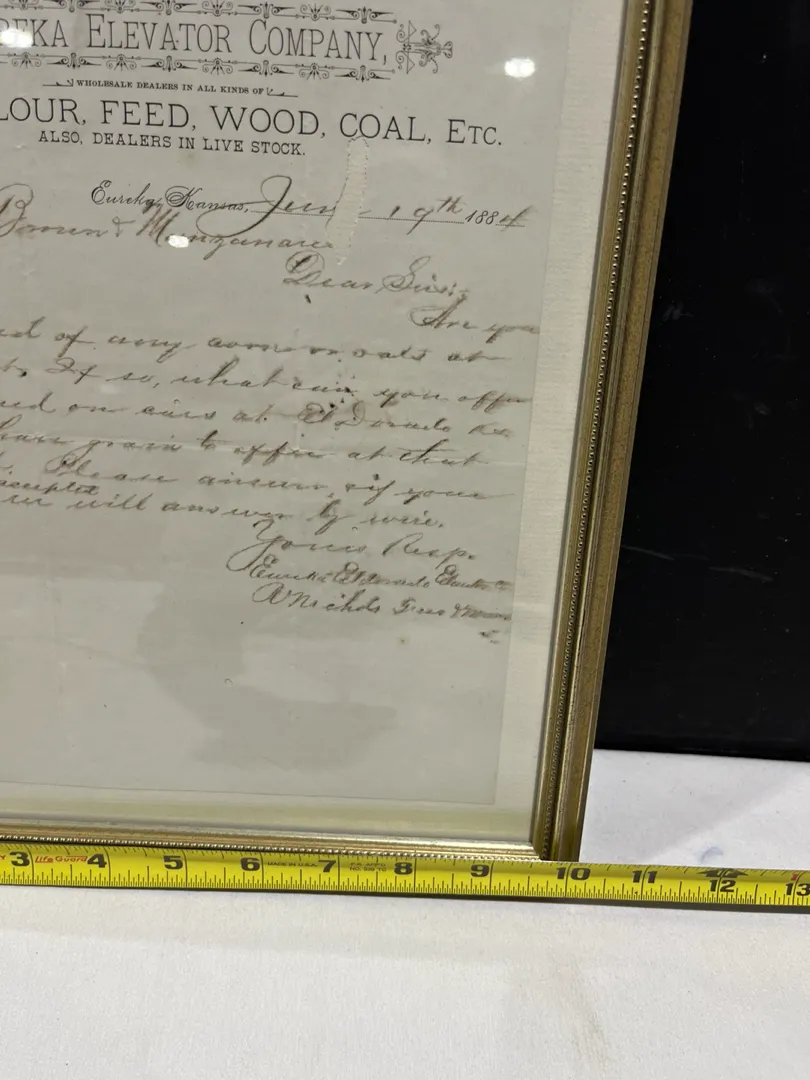 EKA ELEVATOR COMPANY,
WHOLESALE DEALERS IN ALL KINDS OF
LOUR, FEED, WOOD, COAL, ETC.
ALSO, DEALERS IN LIVE STOCK.
Eureka, Kansas, June 19th 1884
Brown & Manzanares
Dear Sirs;
Are you
of any corn or oats at
If so, what can you offer
on cars at El Dorado Ks.
have grain to offer at that
Please answer, if your
accepted
we will answer by wire.
Yours Resp.
Eureka & El Dorado Elevator Co
Nichols
3 LifeGuard 4 5 6 MADE IN U.S.A. 7 8 9 10 11 12 13